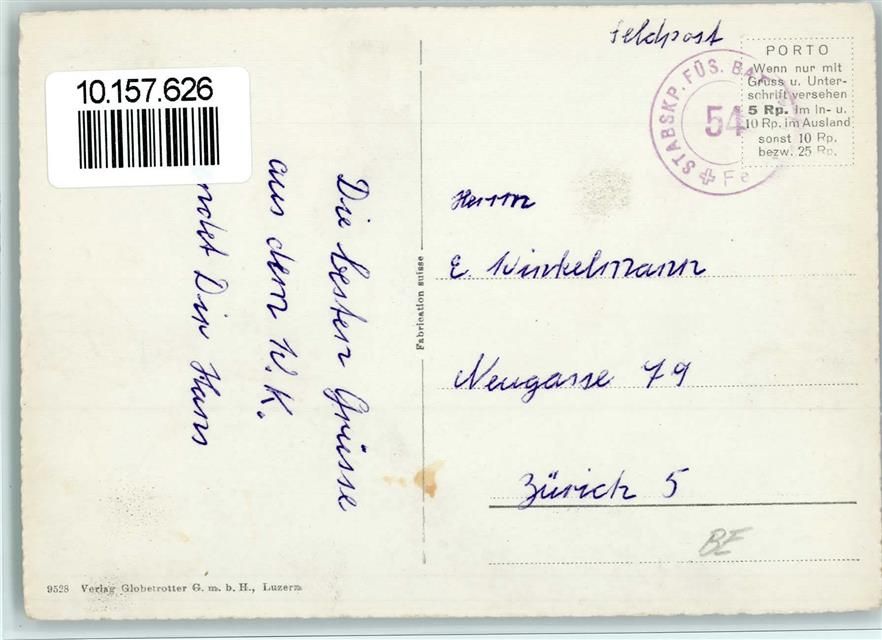 10.157.626
Die besten Grüsse
aus dem W.K.
Dir Hans
9528 Verlag Globetrotter G. m. b. H., Luzern
Fabrication suisse
Feldpost
STABSKP. FÜS. BAT.
54
PORTO
Wenn nur mit
Gruss u. Unter-
schrift versehen
5 Rp. im In- u.
10 Rp. im Ausland
sonst 10 Rp.
bezw. 25 Rp.
Herrn
E. Winkelmann
Neugasse 79
Zürich 5
BE